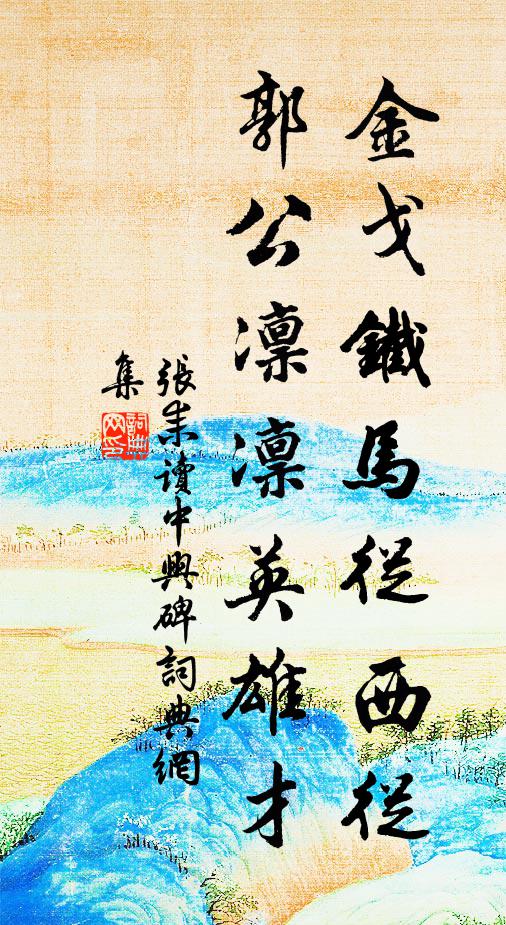 金戈鐵馬從西從
郭公凜凜英雄才
張耒讀中興碑詞典網
集
詞典网印